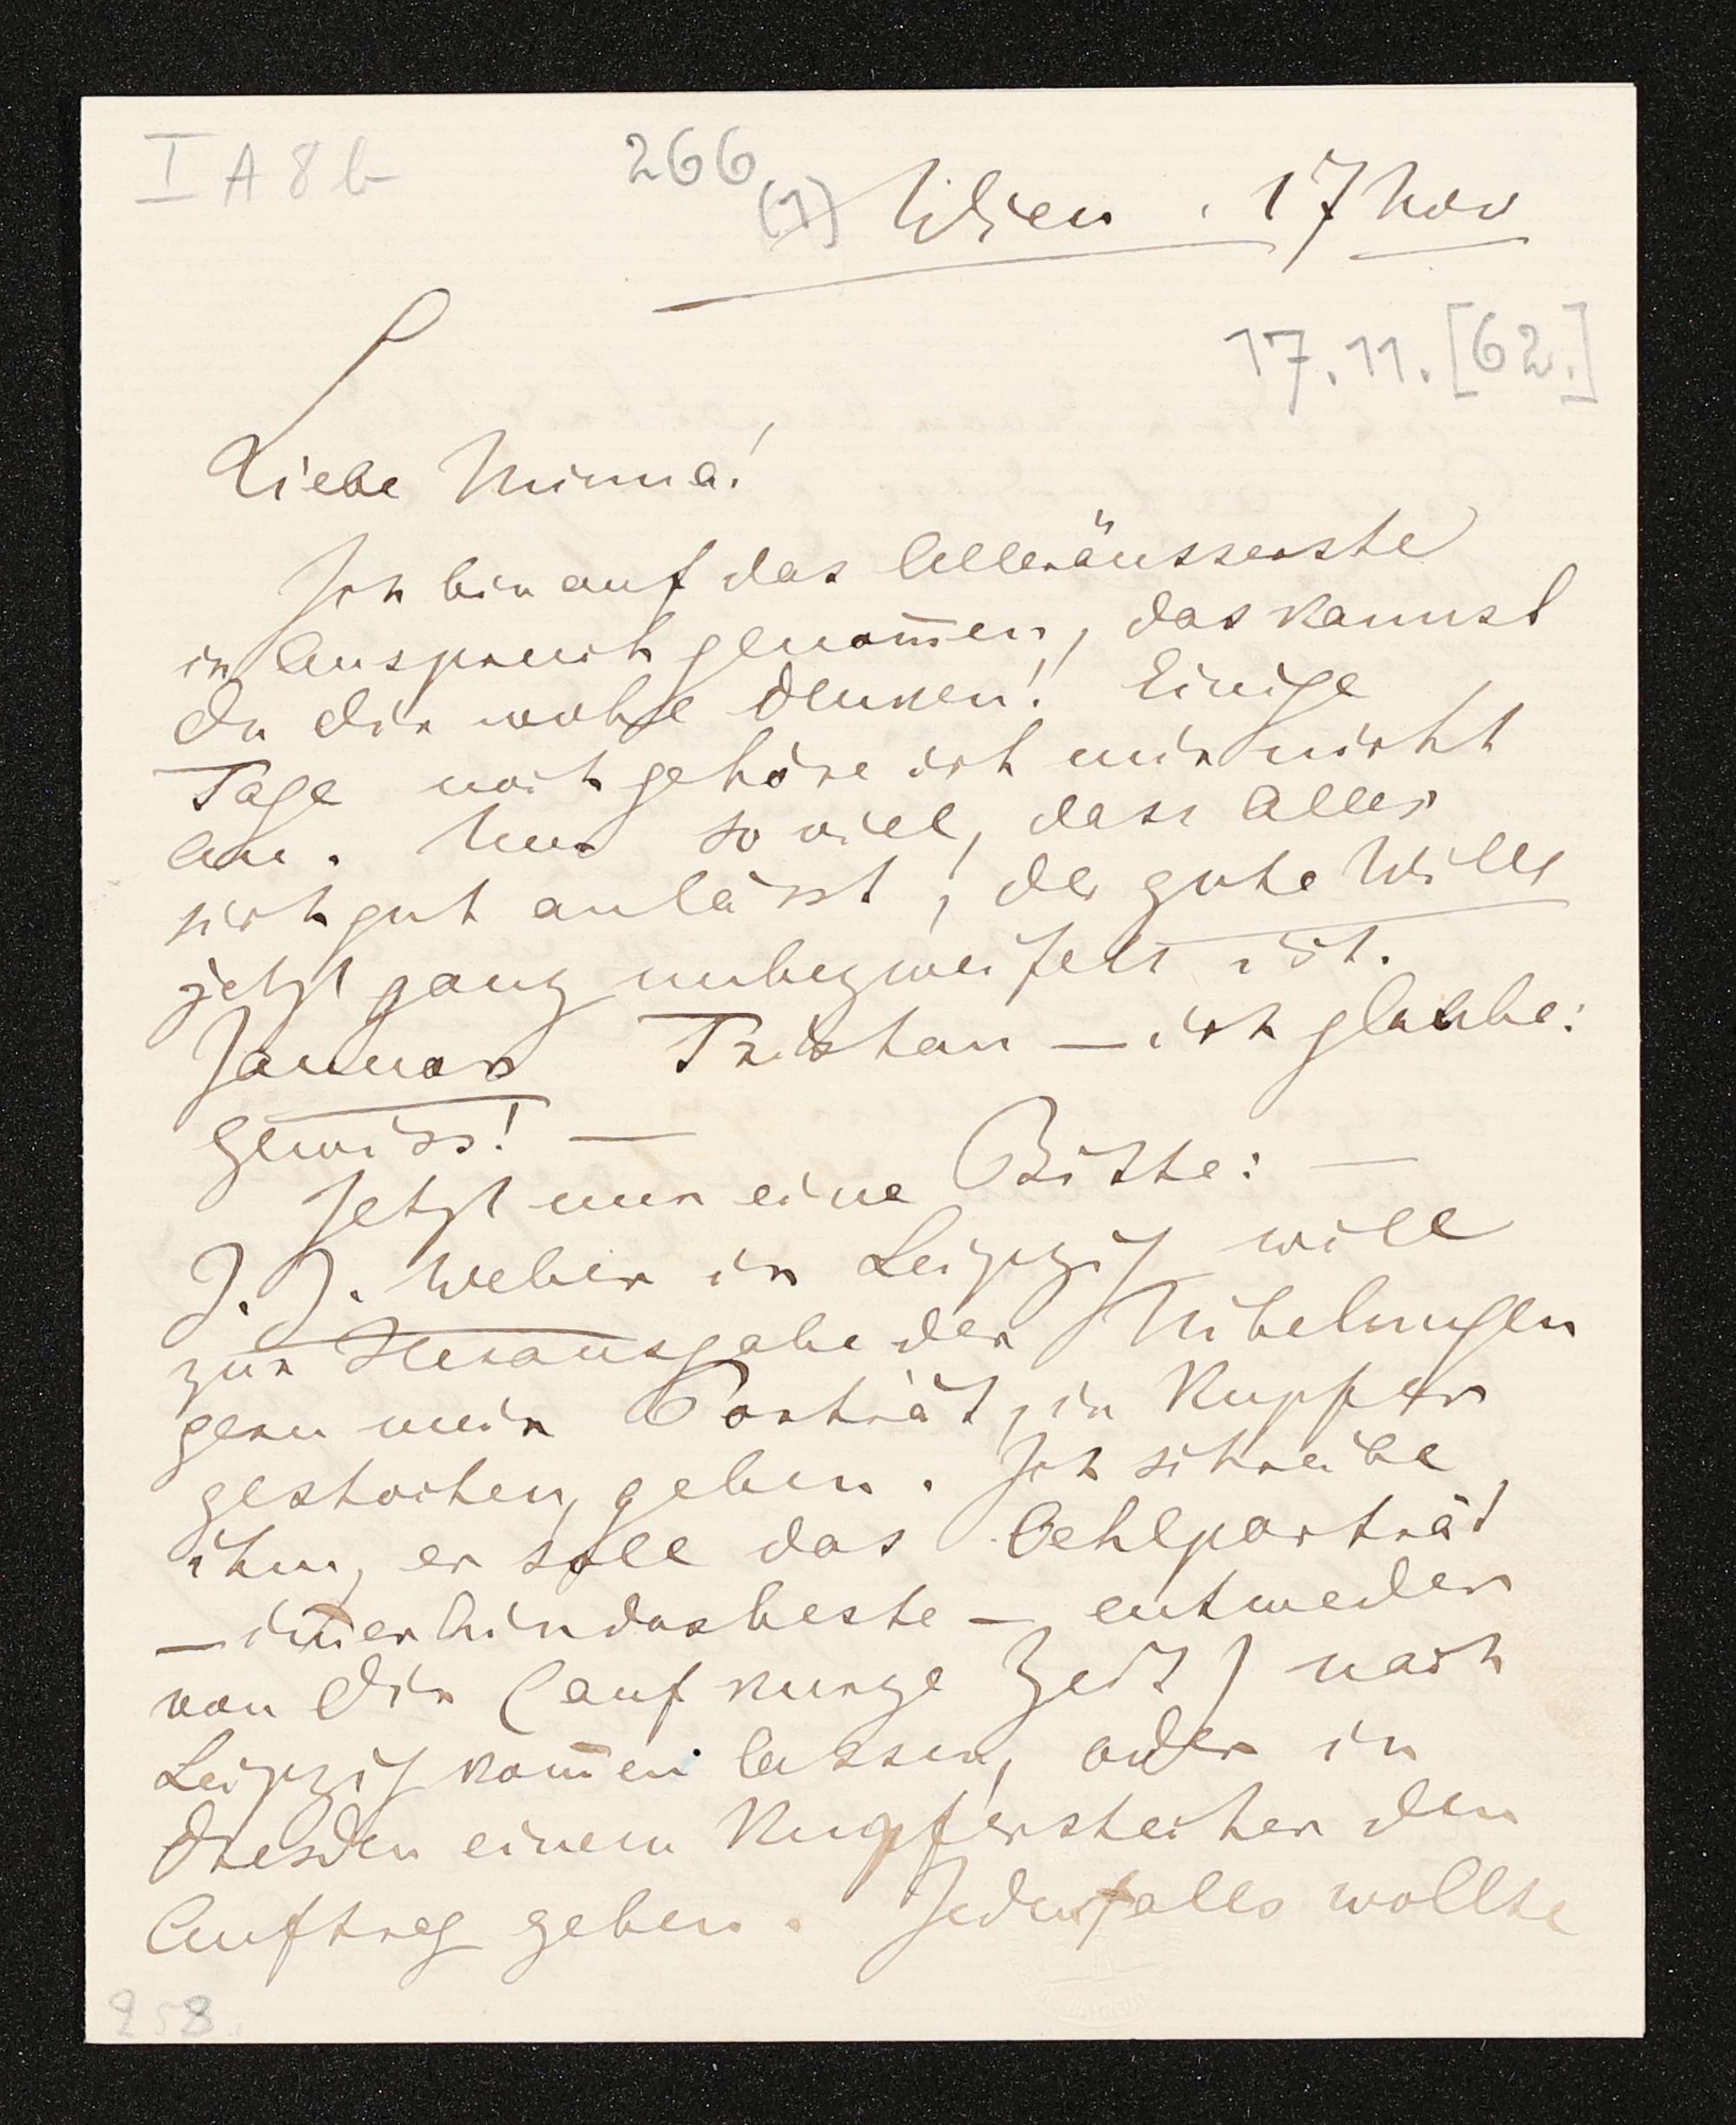 I A 8 b
266
(1) Wien . 17 Nov
17.11.[62.]
Liebe Minna!
Ich bin auf das Alleräusserste
in Anspruch genom̅en, das kannst
Du Dir wohl denken! Einige
Tage noch gehöre ich mir nicht
an. Nur so viel, dass Alles
sich gut anlässt, der gute Wille
jetzt ganz unbezweifelt ist.
Januar Tristan — ich glaube:
gewiss! —
Jetzt nur eine Bitte: —
J. J. Weber in Leipzig will
zur Herausgabe der Nibelungen
gern mein Porträt, in Kupfer
gestochen, geben. Ich schreibe
ihm, er solle das Oehlporträt
— im̅erhin das beste — entweder
von Dir (auf kurze Zeit) nach
Leipzig kom̅en lassen, oder in
Dresden einem Kupferstecher den
Auftrag geben. Jedenfalls wollte
258.